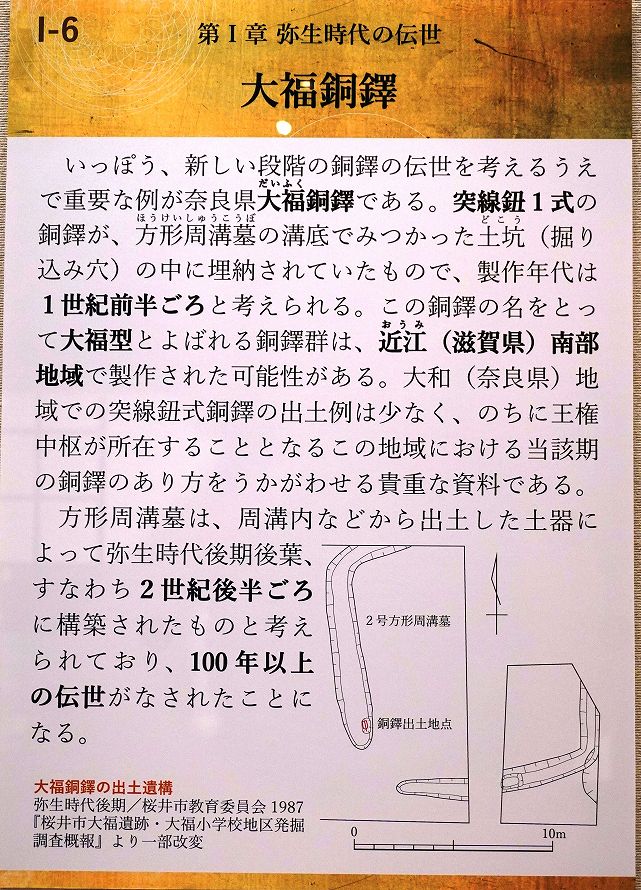 I-6
第Ⅰ章 弥生時代の伝世
大福銅鐸
いっぽう、新しい段階の銅鐸の伝世を考えるうえ
だいふく
で重要な例が奈良県大福銅鐸である。突線鈕1式の
ほうけいしゅうこうぼ どこう
銅鐸が、方形周溝墓の溝底でみつかった土坑（掘り
込み穴）の中に埋納されていたもので、製作年代は
1世紀前半ごろと考えられる。この銅鐸の名をとっ
おうみ
て大福型とよばれる銅鐸群は、近江（滋賀県）南部
地域で製作された可能性がある。大和（奈良県）地
域での突線鈕式銅鐸の出土例は少なく、のちに王権
中枢が所在することとなるこの地域における当該期
の銅鐸のあり方をうかがわせる貴重な資料である。
方形周溝墓は、周溝内などから出土した土器に
よって弥生時代後期後葉、
すなわち2世紀後半ごろ
に構築されたものと考え
られており、100年以上
の伝世がなされたことに
なる。
2号方形周溝墓
銅鐸出土地点
0 10m
大福銅鐸の出土遺構
弥生時代後期／桜井市教育委員会1987
『桜井市大福遺跡・大福小学校地区発掘
調査概報』より一部改変